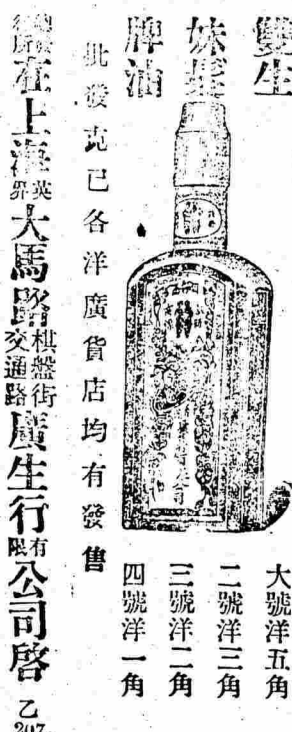 雙生
妹髮
牌油
大號洋五角
二號洋三角
三號洋二角
四號洋一角
批發克己各洋廣貨店均有發售
在上海英界大馬路棋盤街交通路廣生行有限公司啓
乙
207